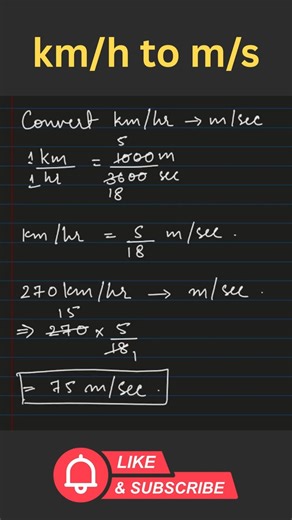 km/h to m/s
Convert km/hr → m/sec
1 km / 1 hr = 5 1000 m / 3600 sec 18
km/hr = 5/18 m/sec.
270 km/hr → m/sec.
15
⇒ 270 × 5/18 1
= 75 m/sec.
LIKE
& SUBSCRIBE